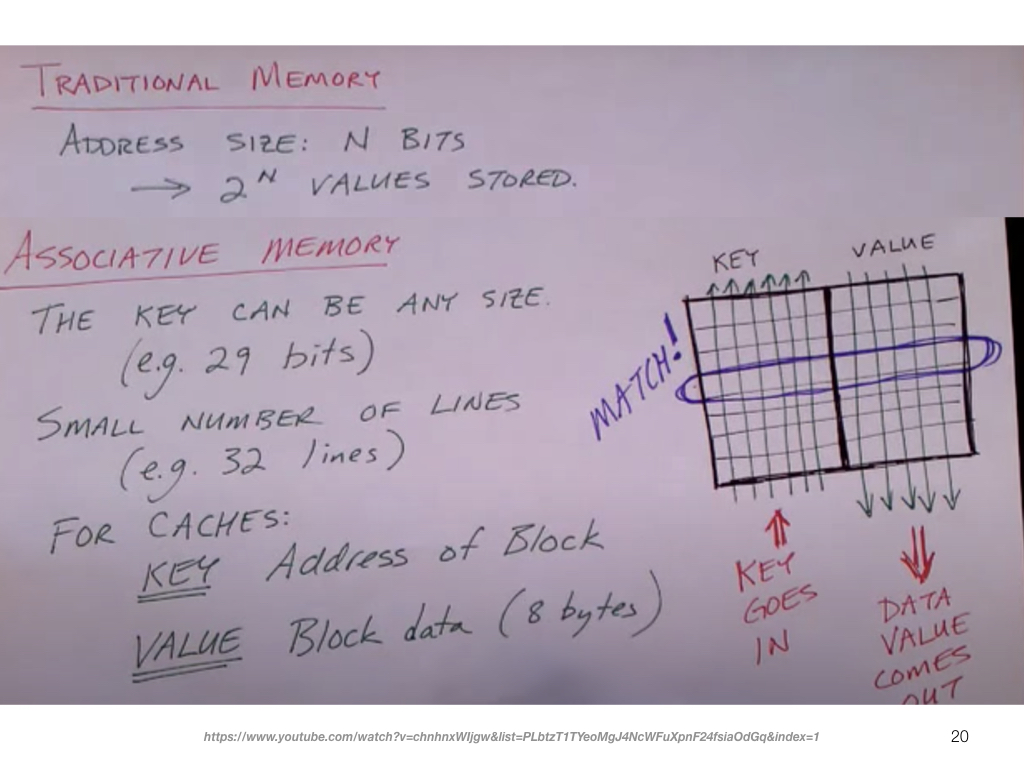 TRADITIONAL MEMORY
ADDRESS SIZE: N BITS
→ 2^N VALUES STORED.
ASSOCIATIVE MEMORY
THE KEY CAN BE ANY SIZE.
(e.g. 29 bits)
SMALL NUMBER OF LINES
(e.g. 32 lines)
FOR CACHES:
KEY Address of Block
VALUE Block data (8 bytes)
KEY VALUE
MATCH!
KEY
GOES
IN
DATA
VALUE
COMES
OUT
https://www.youtube.com/watch?v=chnhnxWIjgw&list=PLbtzT1TYeoMgJ4NcWFuXpnF24fsiaOdGq&index=1
20